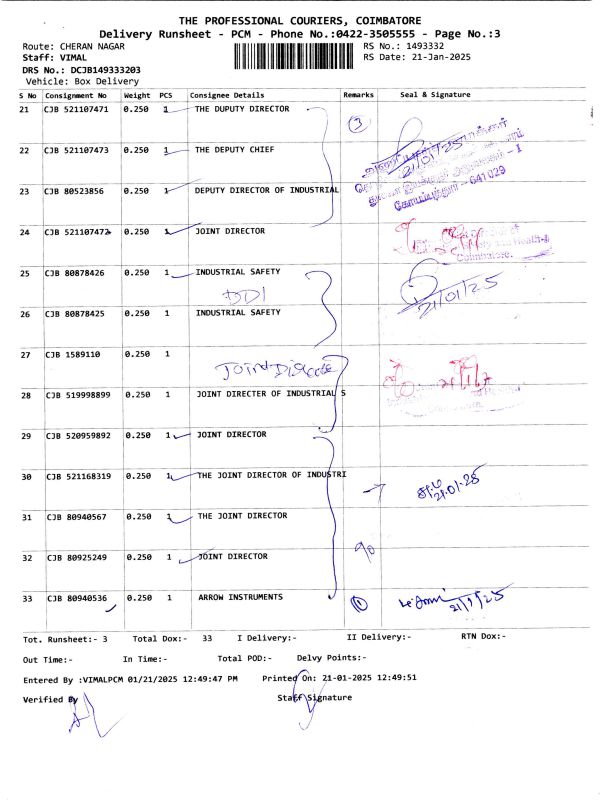 THE PROFESSIONAL COURIERS, COIMBATORE
Delivery Runsheet - PCM - Phone No.:0422-3505555 - Page No.:3
Route: CHERAN NAGAR
RS No.: 1493332
Staff: VIMAL
RS Date: 21-Jan-2025
DRS No.: DCJB149333203
Vehicle: Box Delivery
S No Consignment No Weight PCS Consignee Details Remarks Seal & Signature
21 CJB 521107471 0.250 1 THE DUPUTY DIRECTOR
3
21/01/25
22 CJB 521107473 0.250 1 THE DEPUTY CHIEF
23 CJB 80523856 0.250 1 DEPUTY DIRECTOR OF INDUSTRIAL
கோயம்புத்தூர் - 641 029
24 CJB 521107472 0.250 1 JOINT DIRECTOR
Coimbatore.
25 CJB 80878426 0.250 1 INDUSTRIAL SAFETY
DDI
21/01/25
26 CJB 80878425 0.250 1 INDUSTRIAL SAFETY
27 CJB 1589110 0.250 1
Joint
28 CJB 519998899 0.250 1 JOINT DIRECTER OF INDUSTRIAL S
29 CJB 520959892 0.250 1 JOINT DIRECTOR
30 CJB 521168319 0.250 1 THE JOINT DIRECTOR OF INDUSTRI
21.01.25
31 CJB 80940567 0.250 1 THE JOINT DIRECTOR
32 CJB 80925249 0.250 1 JOINT DIRECTOR
33 CJB 80940536 0.250 1 ARROW INSTRUMENTS
1
21/1/25
Tot. Runsheet:- 3 Total Dox:- 33 I Delivery:- II Delivery:- RTN Dox:-
Out Time:- In Time:- Total POD:- Delvy Points:-
Entered By :VIMALPCM 01/21/2025 12:49:47 PM Printed On: 21-01-2025 12:49:51
Verified By Staff Signature